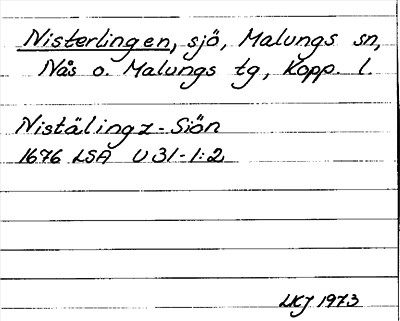 Nisterlingen, sjö, Malungs sn,
Nås o. Malungs tg, Kopp. l.
Nistälingz-Siön
1676 LSA U 31-1:2
LKJ 1973